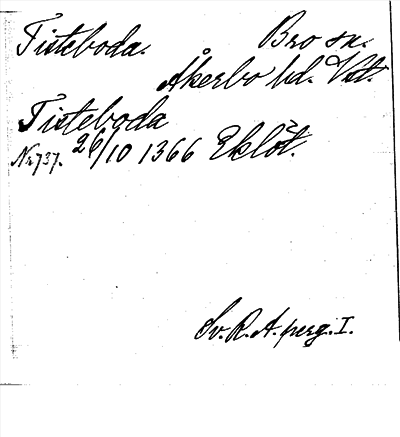 Fisteboda. Bro sn.
Åkerbo hd. Vst.
Fisteboda
Nr 737. 26/10 1366 Eklöt.
Sv. R. A. perg. I.